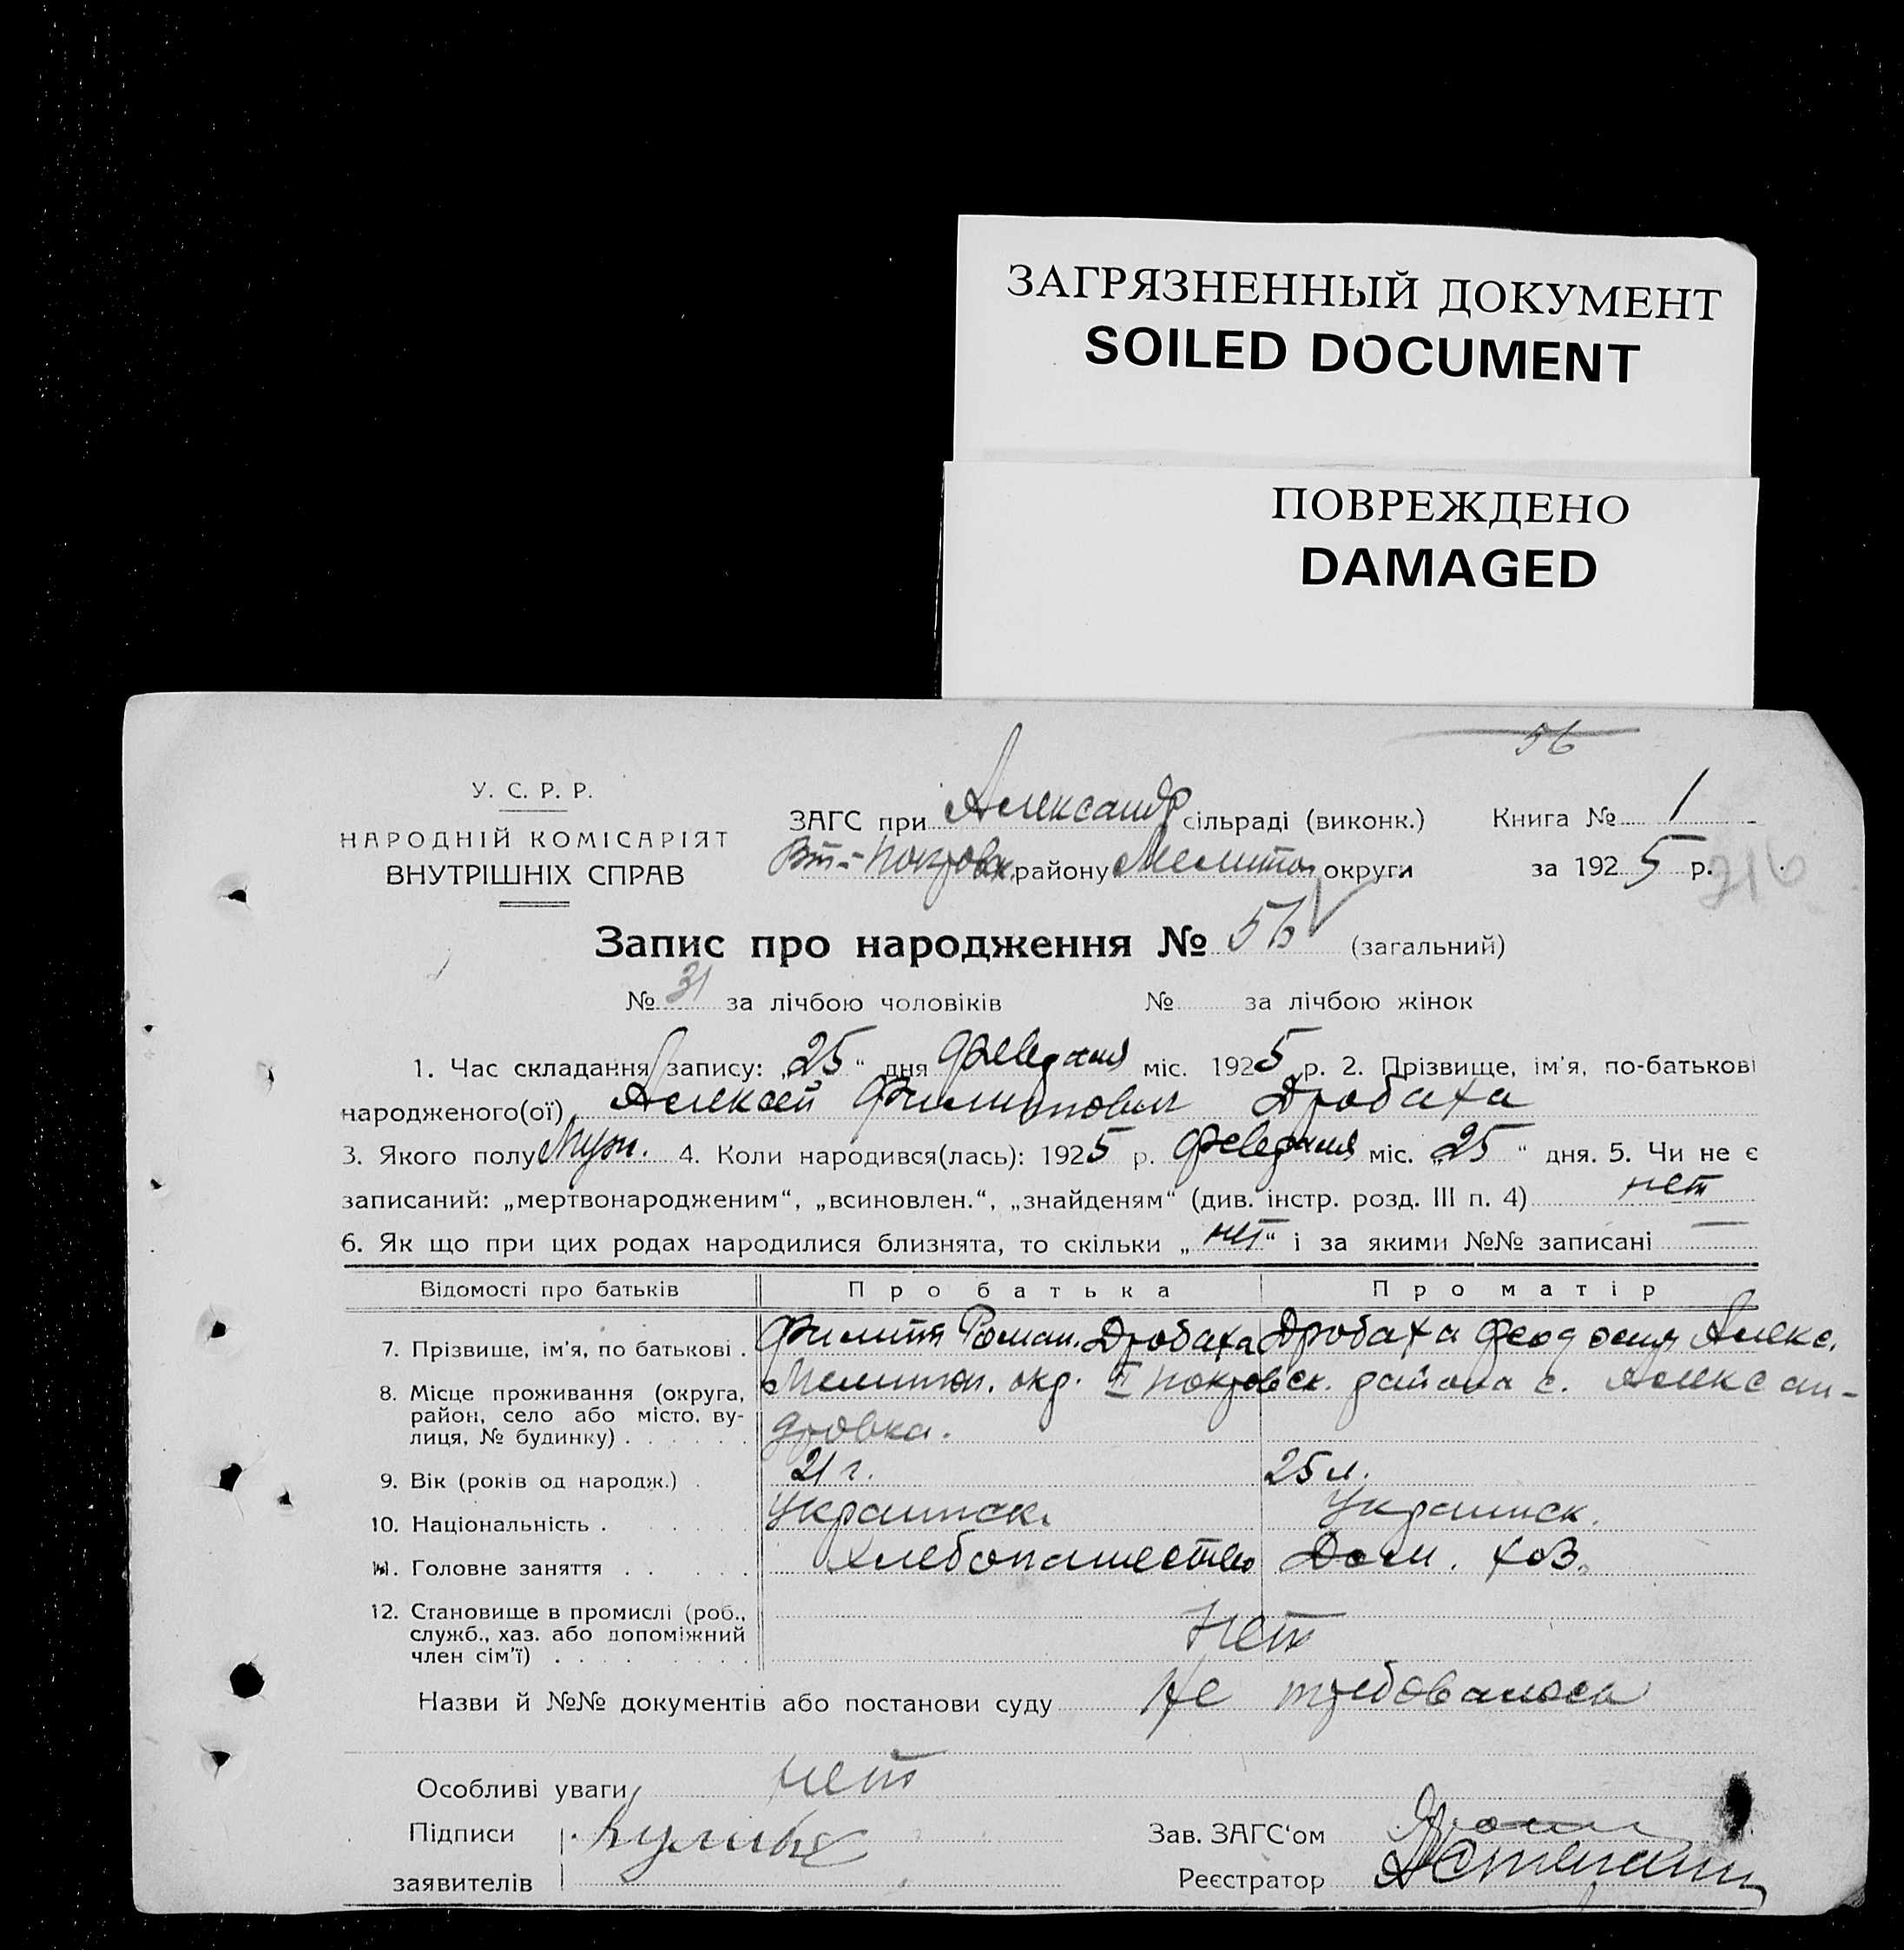 ЗАГРЯЗНЕННЫЙ ДОКУМЕНТ
SOILED DOCUMENT
ПОВРЕЖДЕНО
DAMAGED
56
У. С. Р. Р.
НАРОДНІЙ КОМІСАРІЯТ
ВНУТРІШНІХ СПРАВ
ЗАГС при Александр сільраді (виконк.)
Вт.-Покровск. району Мелитоп округи
Книга № 1
за 1925 р.
216
Запис про народження № 56 (загальний)
№ 31 за лічбою чоловіків № за лічбою жінок
1. Час складання запису: „25“ дня февраля міс. 1925 р. 2. Прізвище, ім'я, по-батькові
народженого(ої) Алексей Филиппович Дробаха
3. Якого полу Муж. 4. Коли народився(лась): 1925 р. февраля міс. „25“ дня. 5. Чи не є
записаний: „мертвонародженим“, „всиновлен.“, „знайденям“ (див. інстр. розд. III п. 4) нет
6. Як що при цих родах народилися близнята, то скільки „нет“ і за якими №№ записані —
Відомості про батьків Про батька Про матір
7. Прізвище, ім'я, по батькові . Филипп Роман. Дробаха Дробаха Феодосия Алекс.
8. Місце проживання (округа, Мелитоп. окр. II Покровск. района с. Алексан-
район, село або місто, ву-
лиця, № будинку) . . . . . . дровка.
9. Вік (років од народж.) . 21 г. 25 л.
10. Національність . . . . . . Украинск. Украинск.
11. Головне заняття . . . . . Хлебопашество Дом. хоз.
12. Становище в промислі (роб.,
служб., хаз. або допоміжний Нет
член сім'ї) . . . . . . . . .
Назви й №№ документів або постанови суду Не требовалось
Особливі уваги нет
Підписи
заявителів
Зав. ЗАГС‘ом
Реєстратор